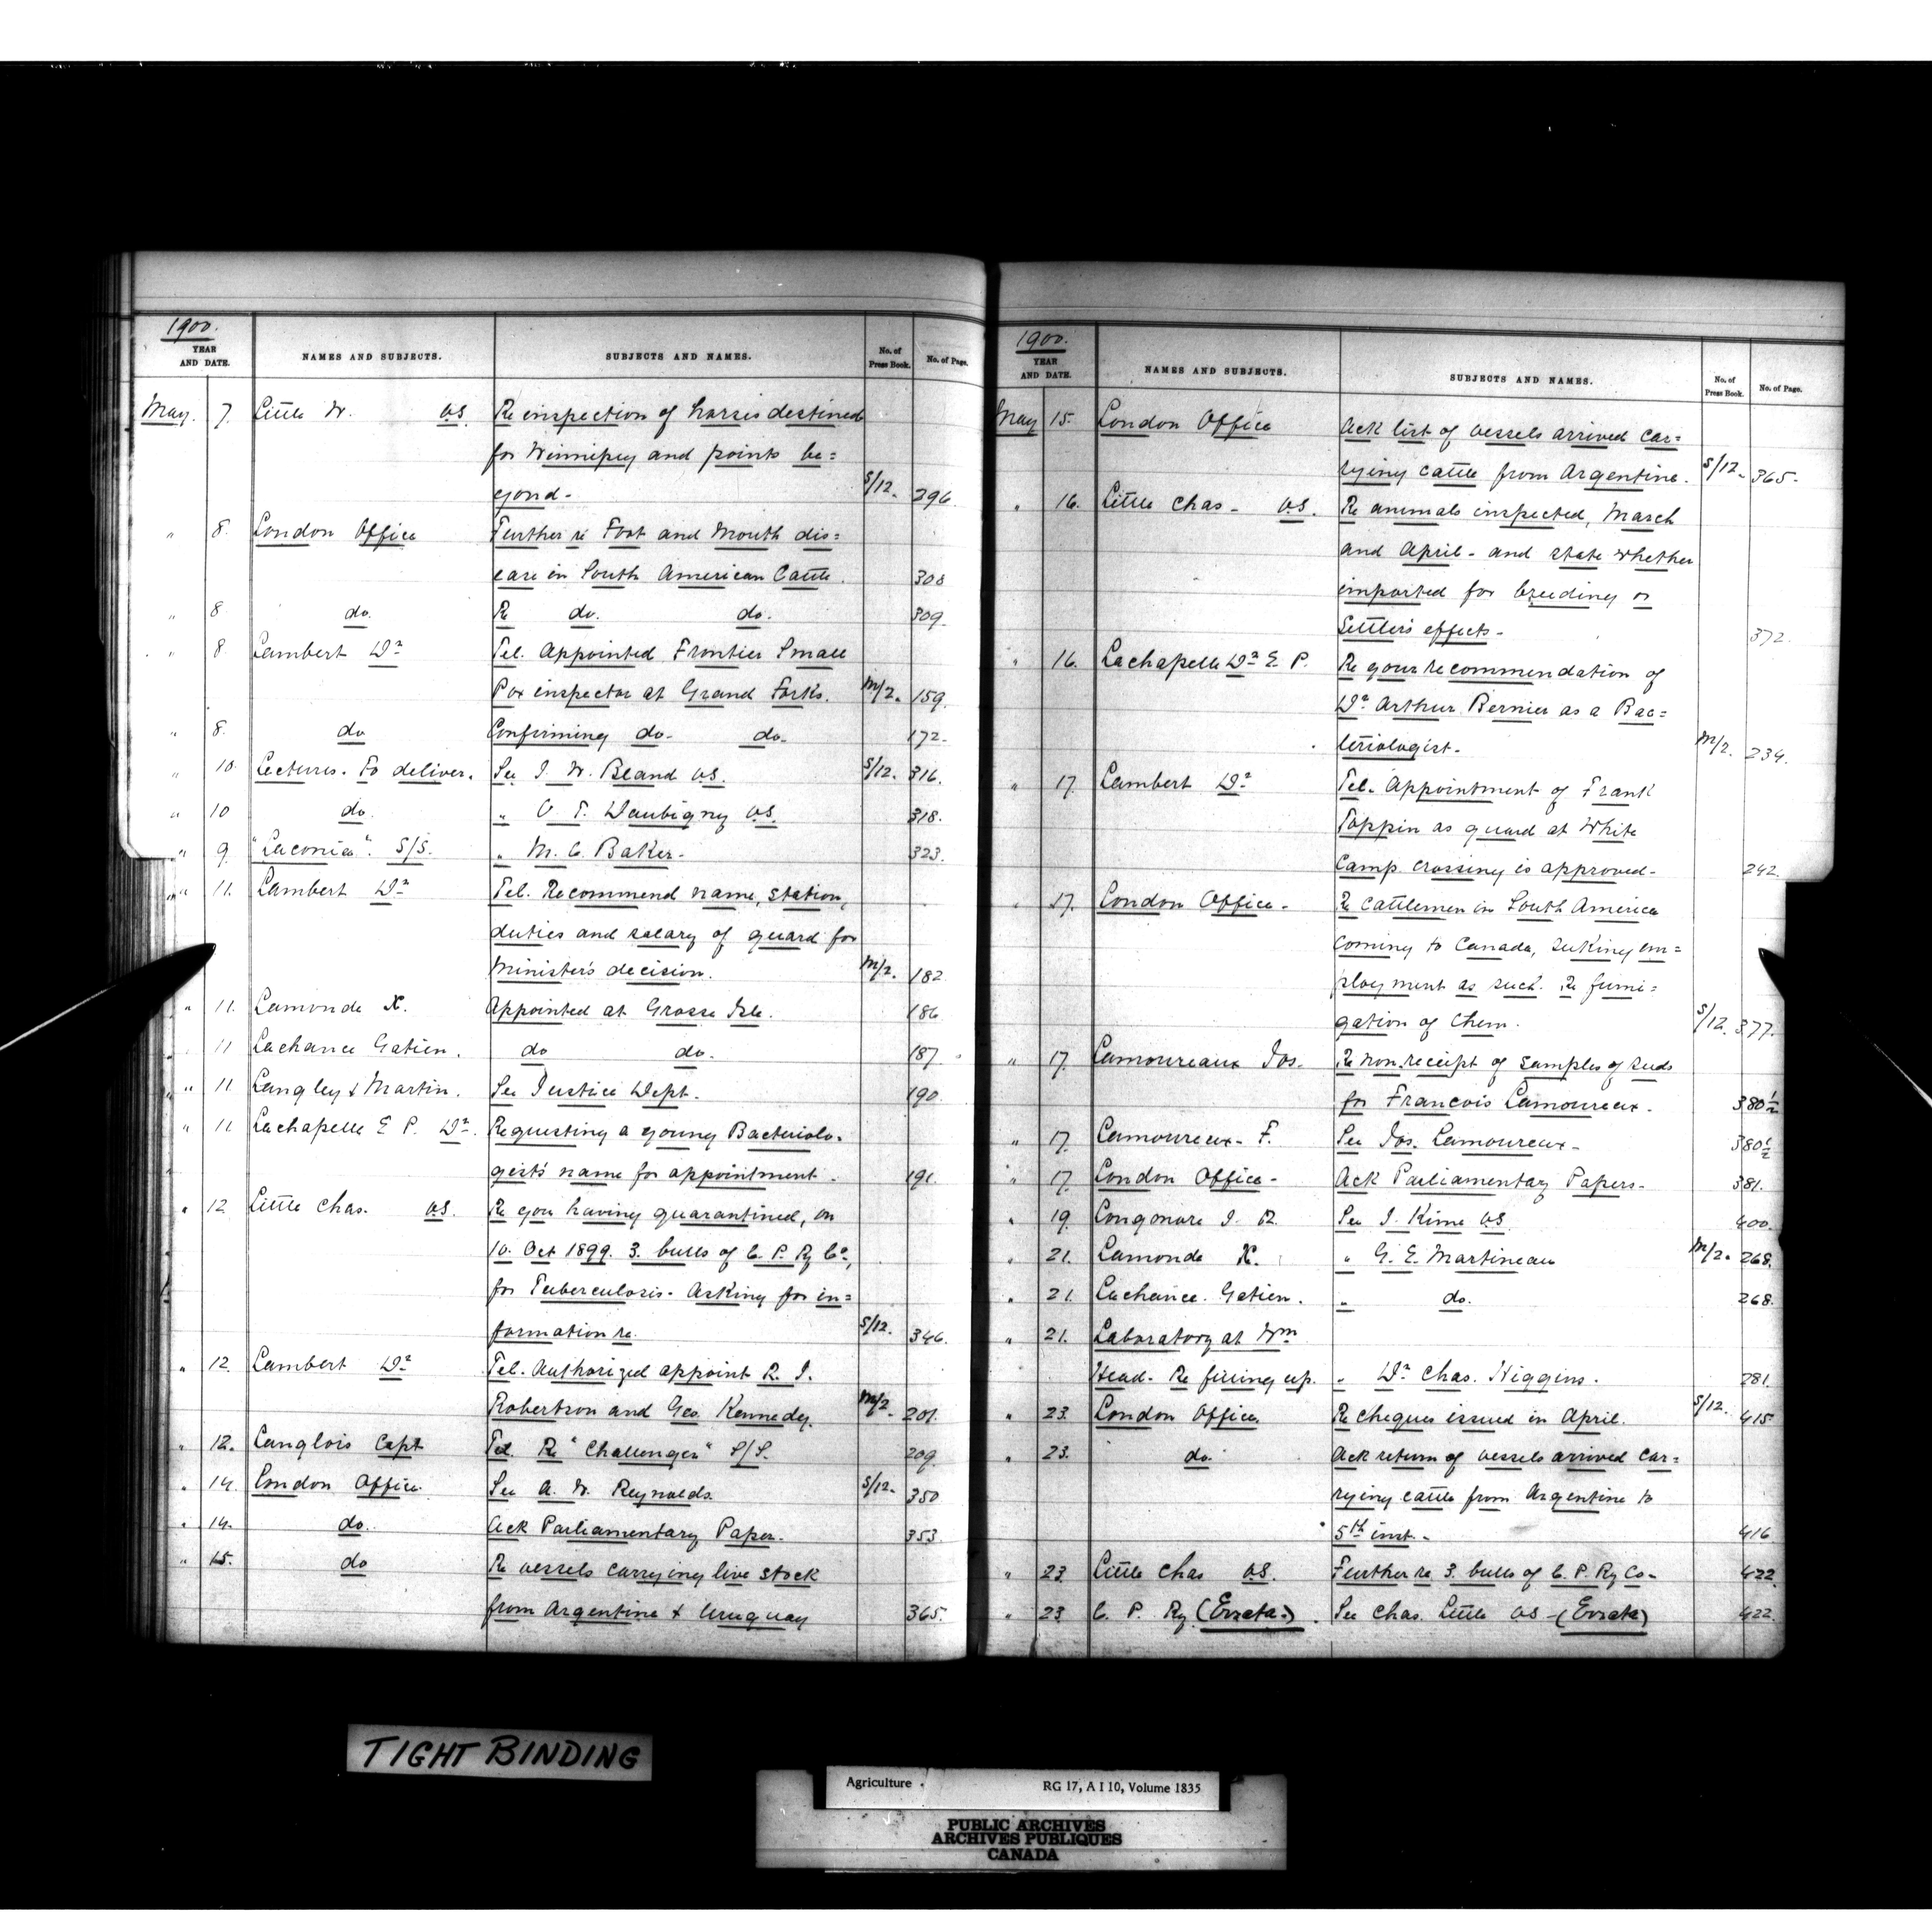 1900.
YEAR AND DATE. NAMES AND SUBJECTS. SUBJECTS AND NAMES. No. of Press Book. No. of Page.
May. 7. Little W. V.S. Re inspection of horses destined
for Winnipeg and points be=
yond- S/12. 296
" 8. London Office Further re Foot and Mouth dis=
ease in South American Cattle. 308
" 8 do. Re do. do. 309.
" 8 Lambert Dr Tel. Appointed Frontier Small
Pox inspector at Grand Forks. M/2. 159.
" 8. do Confirming do- do- 172-
" 10. Lectures. To deliver. See J. W. Bland V.S. S/12. 316.
" 10 do. " V. T. Daubigny V.S. 318.
" 9 "Laconia". S/S. " M. C. Baker- 323-
" 11. Lambert Dr Tel. Recommend name, station,
duties and salary of guard for
Minister's decision. M/2. 182
" 11. Lamonde X. Appointed at Grosse Isle. 186
" 11 Lachance Gatien. do do. 187
" 11 Langley & Martin. See Justice Dept. 190.
" 11. Lachapelle E P. Dr. Requesting a young Bacteriolo-
gist's name for appointment. 191.
" 12 Little Chas. V.S. Re you having quarantined, on
10. Oct 1899. 3. bulls of C. P. Ry Co,
for Tuberculosis- Asking for in=
formation re. S/12. 346.
" 12 Lambert Dr Tel. Authorized appoint R. J.
Robertson and Geo. Kennedy. M/2 201.
" 12. Langlois Capt Tel. Re "Challenger" S/S. 209
" 14. London Office. See A. W. Reynolds. S/12- 350
" 14. do. Ack Parliamentary Paper- 353.
" 15. do Re vessels carrying live stock
from Argentine & Uruguay 365.
1900.
YEAR AND DATE. NAMES AND SUBJECTS. SUBJECTS AND NAMES. No. of Press Book. No. of Page.
May 15. London Office Ack list of vessels arrived car=
rying cattle from Argentine. S/12- 365-
" 16. Little Chas- V.S. Re animals inspected, March
and April- and state whether
imported for breeding or
Settlers effects- 372.
" 16. Lachapelle Dr E. P. Re your recommendation of
Dr Arthur Bernier as a Bac=
teriologist- M/2. 234.
" 17 Lambert Dr Tel- Appointment of Frank
Toppin as guard at White
Camp. crossing is approved- 242.
" 17. London Office- Re cattlemen in South America
coming to Canada, seeking em=
ployment as such. Re fumi=
gation of them. S/12. 377.
" 17. Lamoureaux Jos. Re non.receipt of samples of seeds
for Francois Lamoureux- 380½
" 17. Lamoureux- F. See Jos. Lamoureux- 380½
" 17. London Office- Ack Parliamentary Papers- 381.
" 19. Longmore J. R. See J. Kime V.S. 400.
" 21. Lamonde X. " G. E. Martineau M/2. 268.
" 21. Lachance. Gatien. " do. 268.
" 21. Laboratory at Wm
Head- Re fitting up. " Dr Chas. Higgins. 281.
" 23. London Office. Re cheques issued in April. S/12. 415
" 23. do. Ack return of vessels arrived car=
rying cattle from Argentine to
5th inst.- 416
" 23 Little Chas V.S. Further re 3. bulls of C. P. Ry Co- 422.
" 23 C. P. Ry (Errata.). See Chas. Little V.S-(Errata) 422.
TIGHT BINDING
Agriculture. RG 17, A I 10, Volume 1835
PUBLIC ARCHIVES
ARCHIVES PUBLIQUES
CANADA